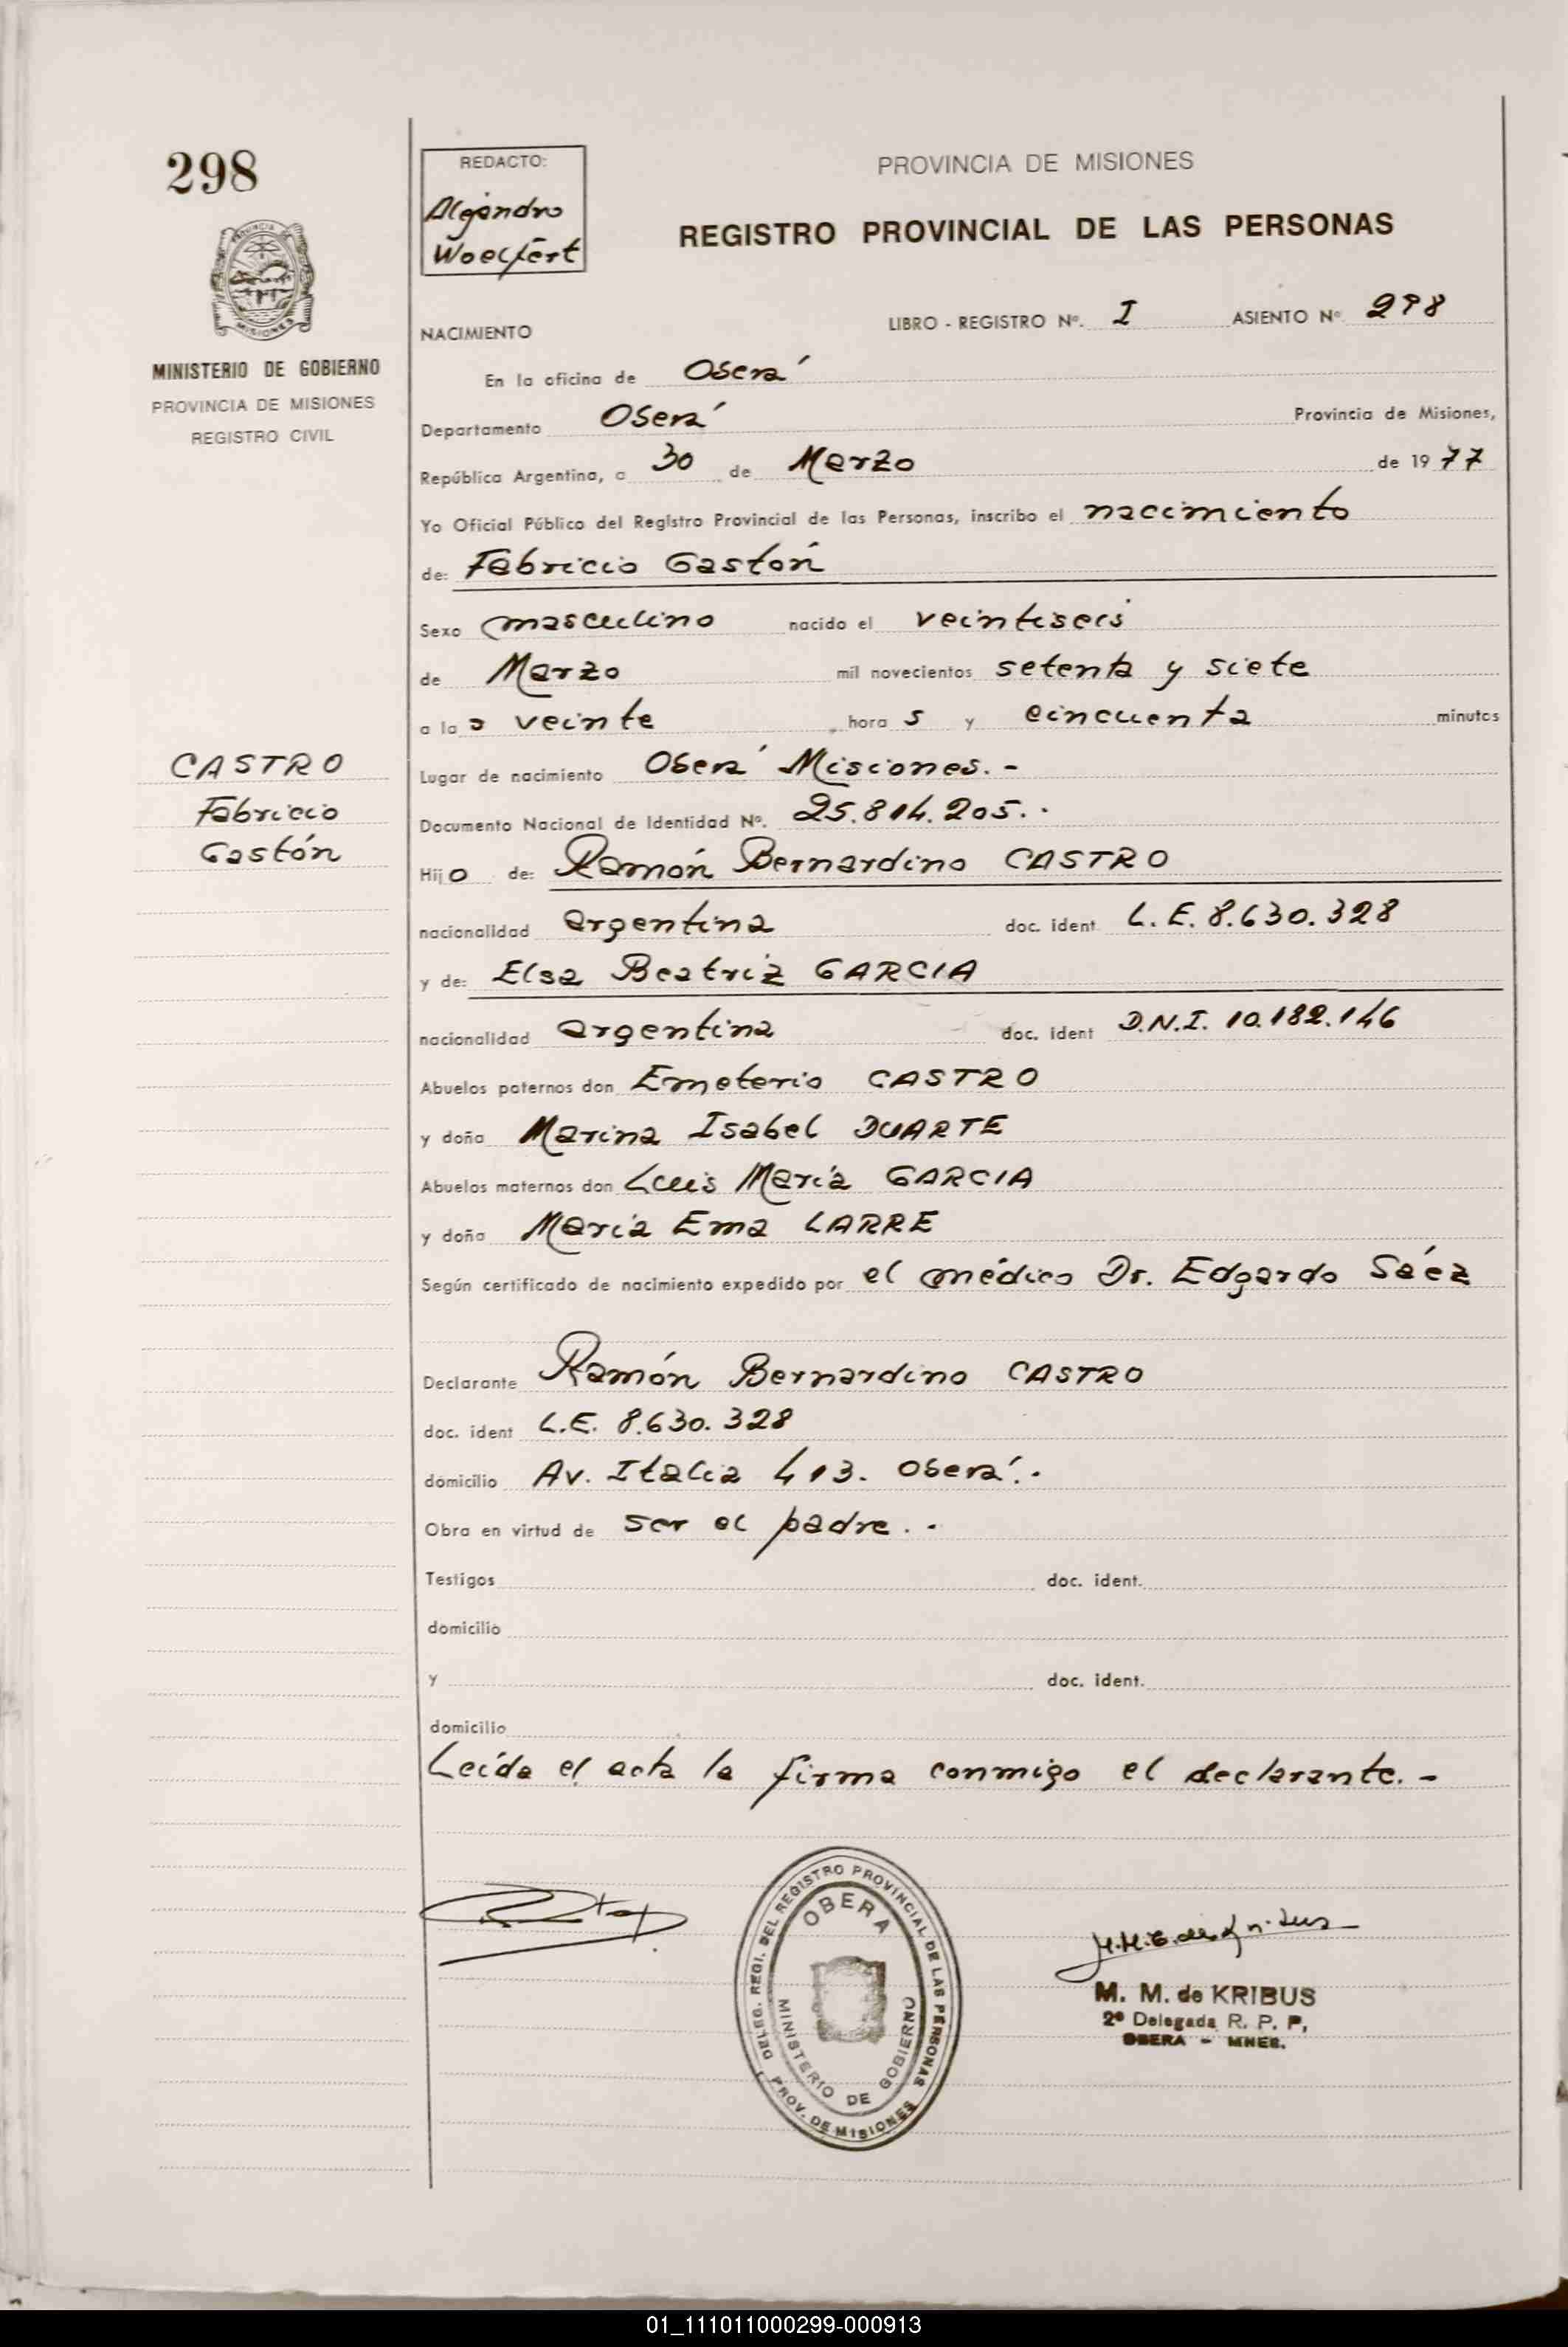 298
PROVINCIA DE MISIONES
MINISTERIO DE GOBIERNO
PROVINCIA DE MISIONES
REGISTRO CIVIL
CASTRO
Fabricio
Gastón
REDACTO:
Alejandro
Woelfert
PROVINCIA DE MISIONES
REGISTRO PROVINCIAL DE LAS PERSONAS
NACIMIENTO LIBRO - REGISTRO Nº. I ASIENTO Nº 298
En la oficina de Oberá
Departamento Oberá Provincia de Misiones,
República Argentina, a 30 de Marzo de 1977
Yo Oficial Público del Registro Provincial de las Personas, inscribo el nacimiento
de: Fabricio Gastón
Sexo masculino nacido el veintiseis
de Marzo mil novecientos setenta y siete
a las veinte horas y cincuenta minutos
Lugar de nacimiento Oberá Misiones.-
Documento Nacional de Identidad Nº. 25.814.205.-
Hijo de: Ramón Bernardino CASTRO
nacionalidad argentina doc. ident. L.E. 8.630.328
y de: Elsa Beatriz GARCIA
nacionalidad argentina doc. ident D.N.I. 10.182.146
Abuelos paternos don Emeterio CASTRO
y doña Marina Isabel DUARTE
Abuelos maternos don Luis María GARCIA
y doña María Ema LARRE
Según certificado de nacimiento expedido por el médico Dr. Edgardo Sáez
Declarante Ramón Bernardino CASTRO
doc. ident L.E. 8.630.328
domicilio Av. Italia 413. Oberá.-
Obra en virtud de ser el padre.-
Testigos doc. ident.
domicilio
y doc. ident.
domicilio
Leída el acta la firma conmigo el declarante.-
DELEG. REGI. DEL REGISTRO PROVINCIAL DE LAS PERSONAS
PROV. DE MISIONES
OBERA
MINISTERIO DE GOBIERNO
M. M. de KRIBUS
2º Delegada R. P. P.
OBERA - MNES.
01_111011000299-000913